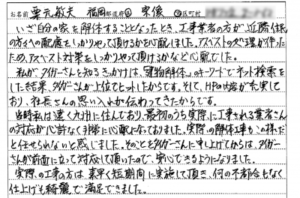 お名前 栗元敏夫 福岡 都道府県 宗像 市区町村
いざ自分の家を解体することとなったとき、工事業者の方が近隣住民
の方々への配慮をしっかりやって頂けるか心配しました。アスベストの処理が伴っ
たため、アスベスト対策をしっかりやって頂けるかなど心配でした。
私が、タイガーさんを知るきっかけは、「建物解体」のキーワードでネット検索をし
た結果、タイガーさんが上位でヒットしたからです。そして、HPの内容が充実して
おり、社長さんの思い入れが伝わってきたからです。
当時私は遠く九州に住んでおり、最初のうちは実際に工事される業者さん
の対応が心許なく非常に心配になっておりました。実際の解体工事もこの様だ
と任せられないと感じました。そのことをタイガーさんに申し上げてからは、タイガー
さんが前面に立って対応して頂いたので、安心できるようになりました。
実際の工事の方は、素早く短期間に実施して頂き、何の不都合もなく
仕上げも綺麗で満足できました。